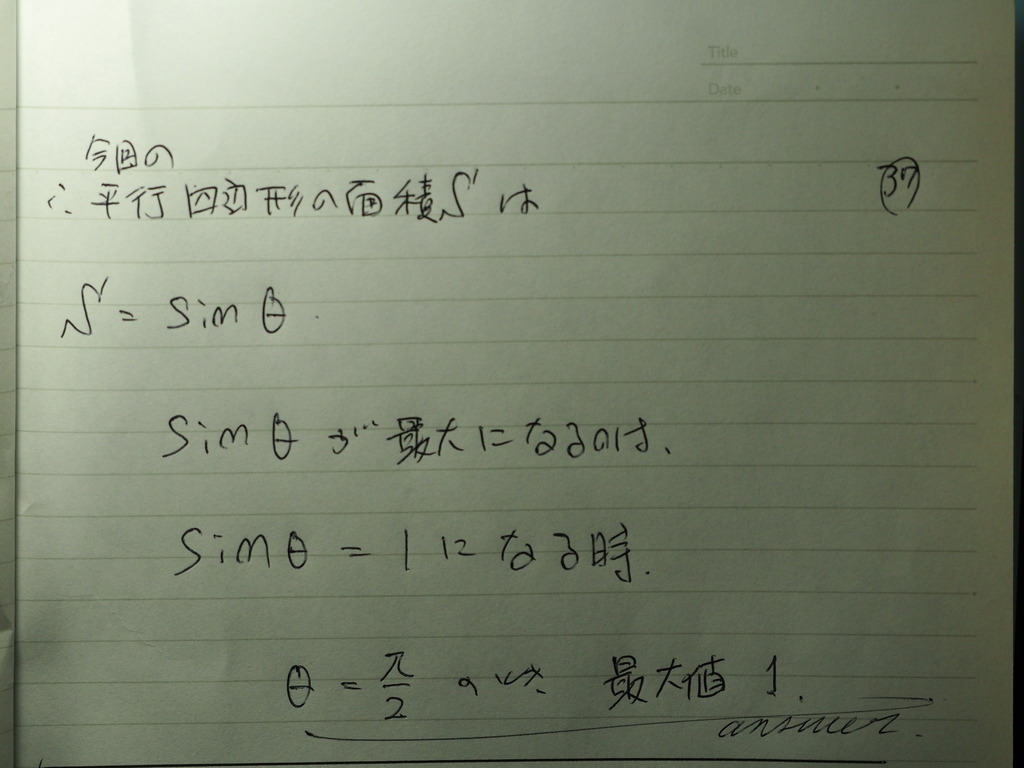 Title
Date
今回の
∴ 平行四辺形の面積S は
㊲
S = sin θ.
sin θ が最大になるのは、
sin θ = 1 になる時.
θ = π/2 のとき、最大値 1.
answer.